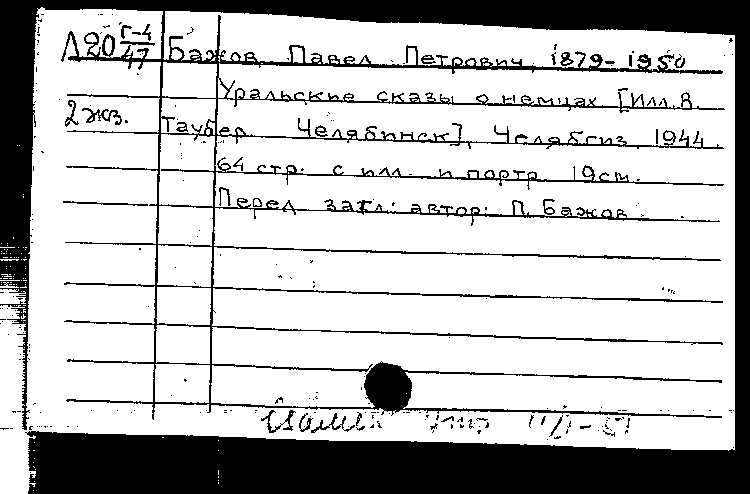 Л20 Г-4/47 Бажов, Павел Петрович, 1879-1950
Уральские сказы о немцах [Илл. В.
2 экз. Таубер. Челябинск], Челябгиз, 1944.
64 стр. с илл. и портр. 19см.
Перед загл.: автор: П. Бажов.